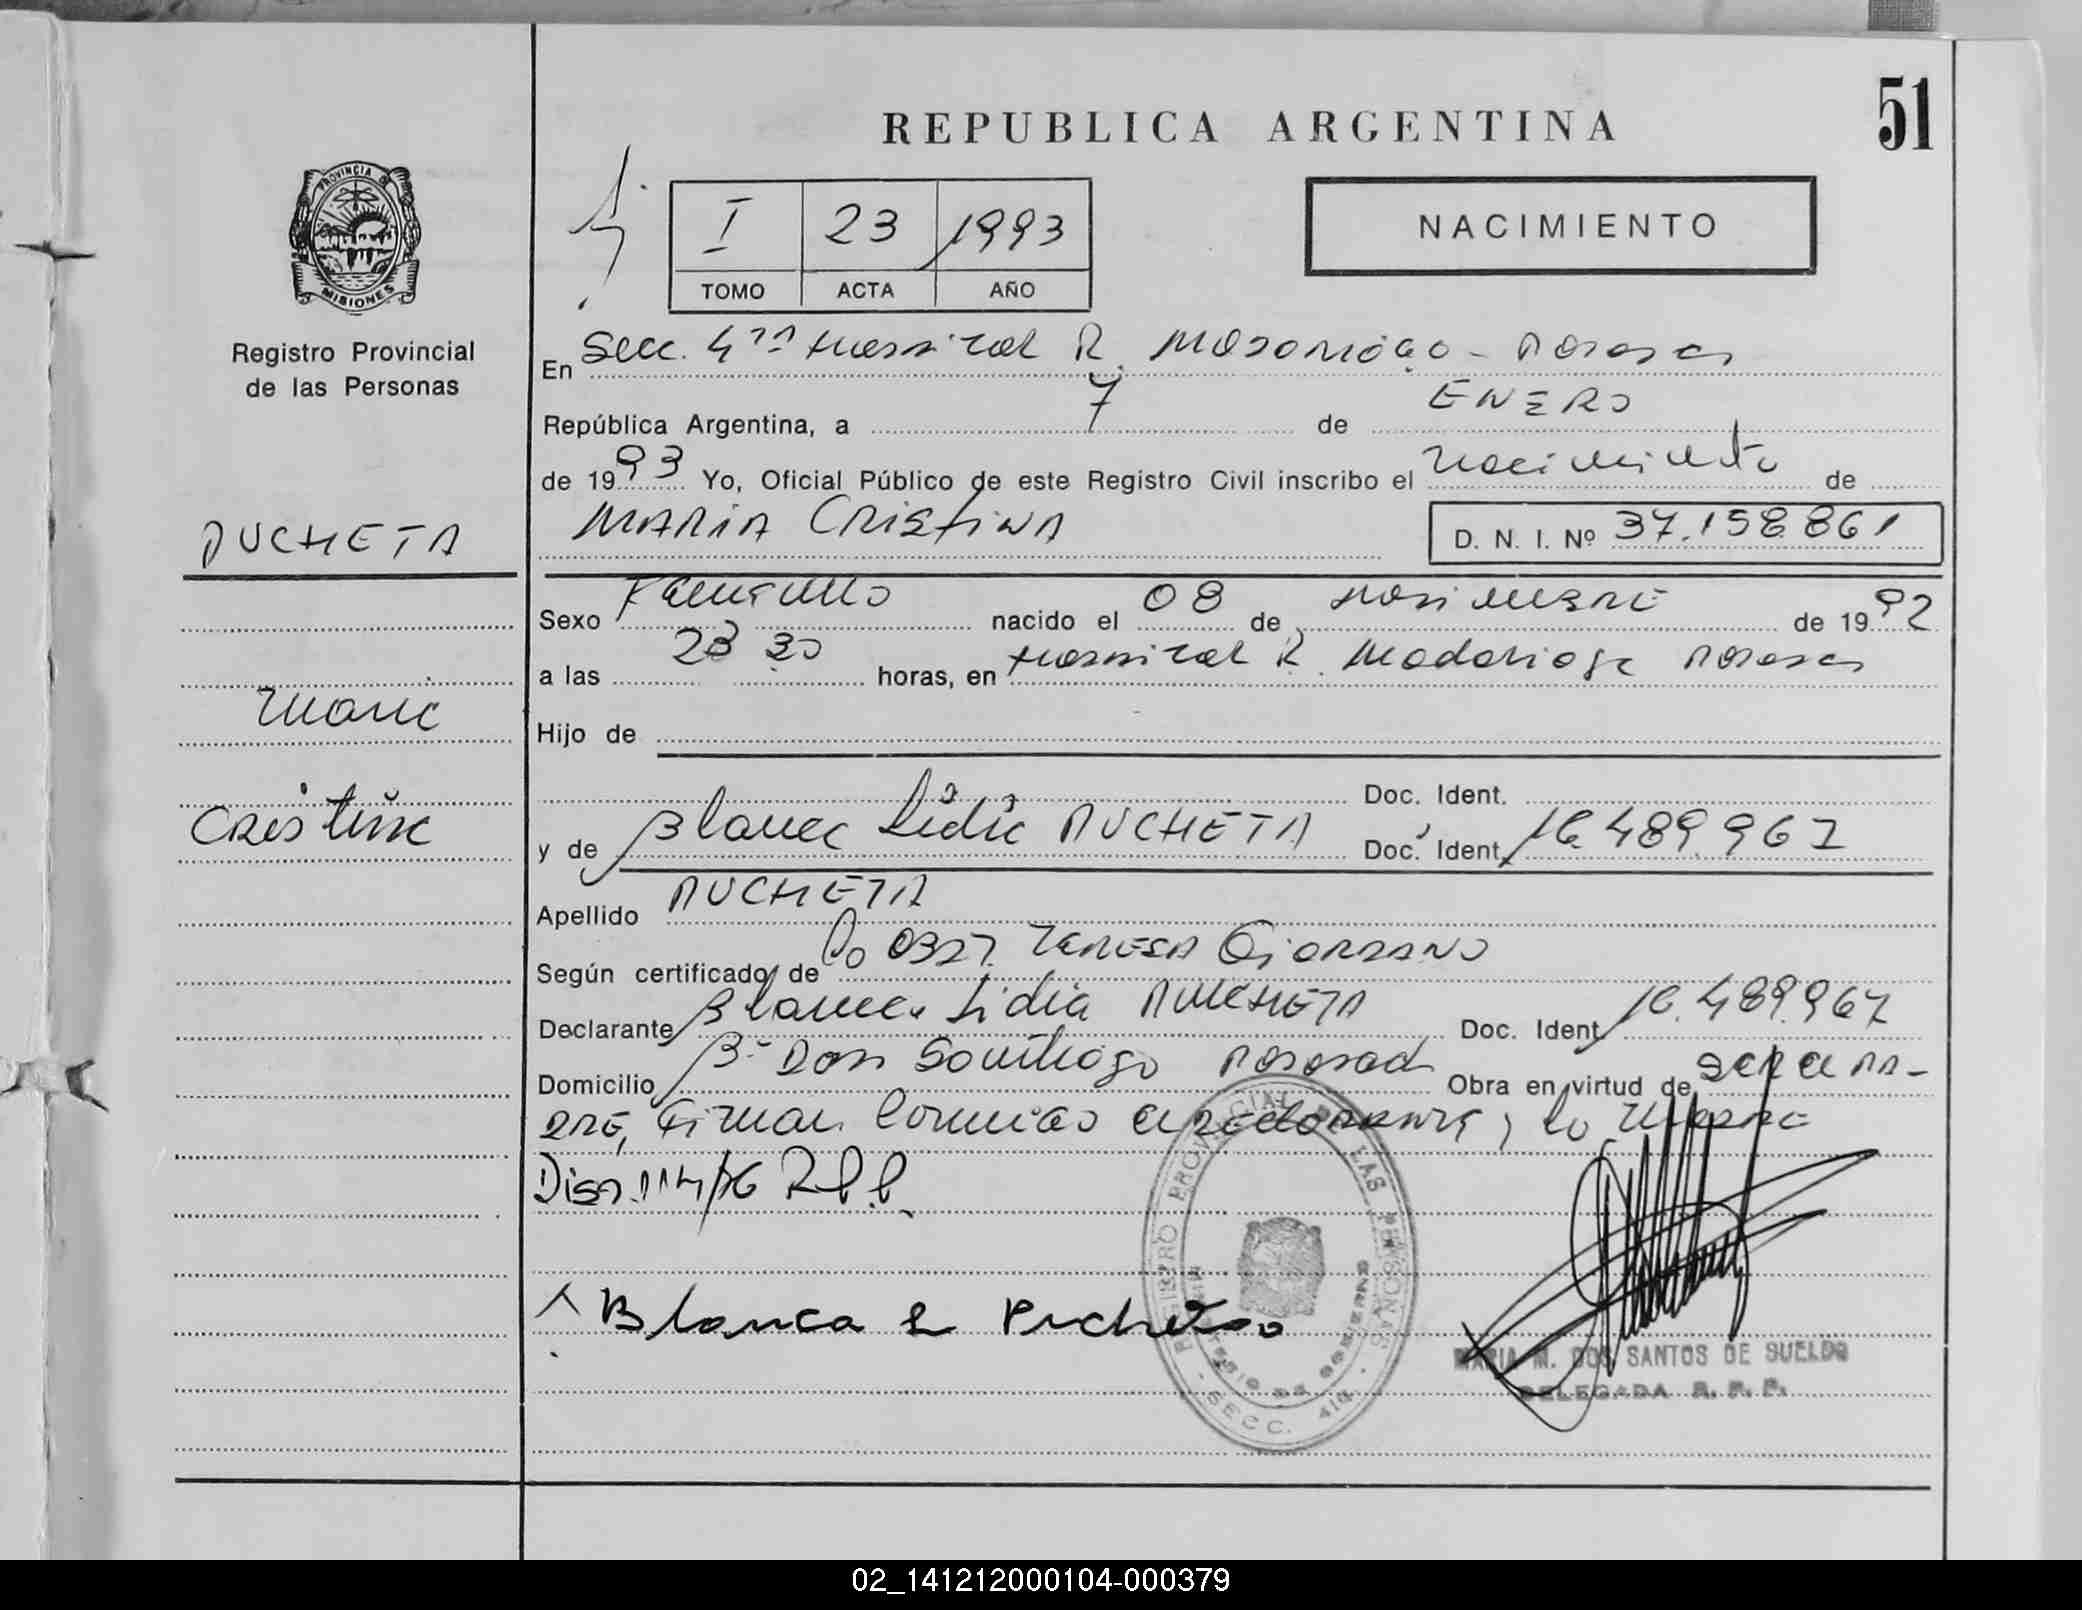 51
REPUBLICA ARGENTINA
PROVINCIA DE
MISIONES
NACIMIENTO
I 23 1993
TOMO ACTA AÑO
Registro Provincial
de las Personas
En Secc. 4ta Hospital R. Madariaga - Posadas
República Argentina, a 7 de ENERO
de 1993 Yo, Oficial Público de este Registro Civil inscribo el nacimiento de
MARIA CRISTINA
D. N. I. Nº 37.158.861
PUCHETA
Maria
Cristina
Sexo Femenino nacido el 08 de Noviembre de 1992
a las 23 30 horas, en Hospital R. Madariaga Posadas
Hijo de
Doc. Ident.
y de Blanca Lidia PUCHETA Doc. Ident. 16.489.967
Apellido PUCHETA
Según certificado de 0327 TERESA Giordano
Declarante Blanca Lidia PUCHETA Doc. Ident. 16.489.967
Domicilio Bº Don Santiago Posadas Obra en virtud de ser la ma-
dre, Firman conmigo la declarante, lo
Disp. 114/76 R.P.P.
Blanca L Pucheta
REGISTRO PROVINCIAL DE LAS PERSONAS
SECC. 4ta
MARIA M. DOS SANTOS DE SUELDO
DELEGADA R. P. P.
02_141212000104-000379